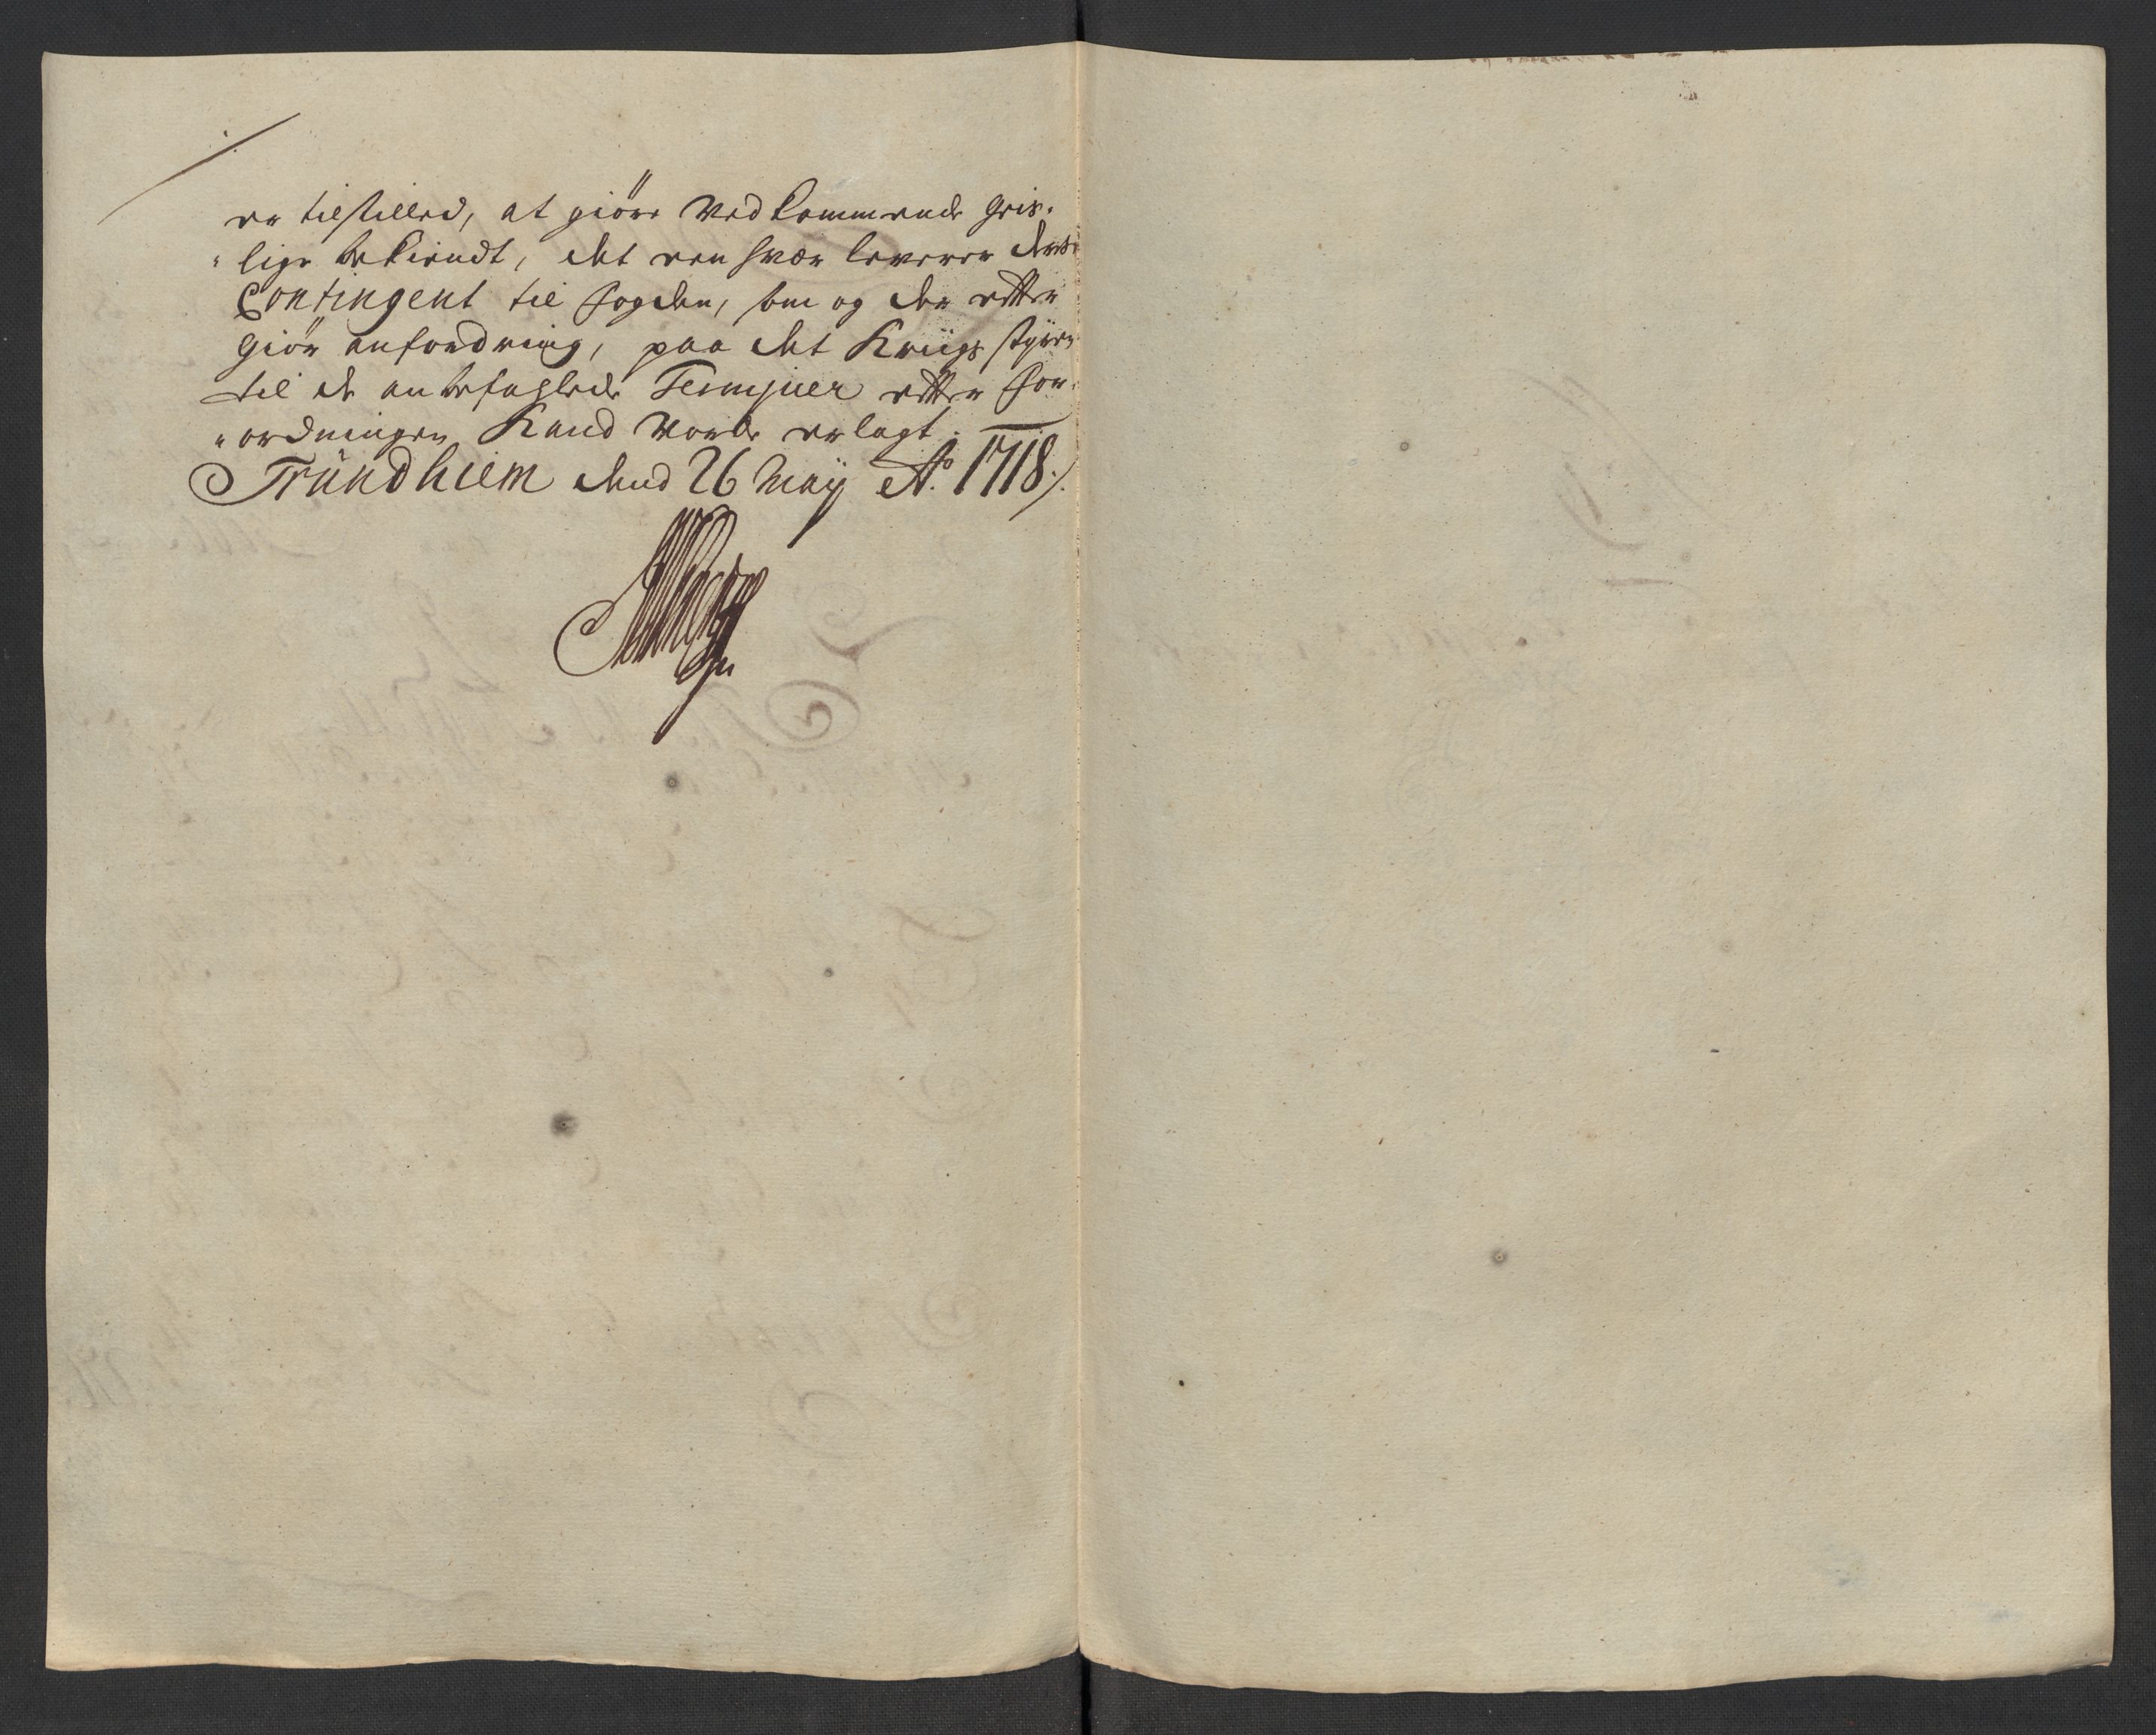 er tilstilled, at giöre Vedkommende Geis-
"lige bekiendt, det een hver leverer deris
Contingent til fogden, som og der efter
giör anfordring, paa det Kriigs styren
til de anbefahlede Terminer efter for-
"ordningen Kand worde erlagt.
Trundhiem dend 26 Maij Ao. 1718.